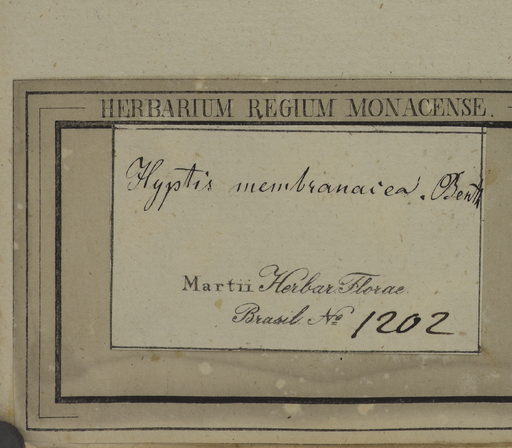 HERBARIUM REGIUM MONACENSE.
Hyptis membranacea. Benth
Martii Herbar. Florae
Brasil. No 1202